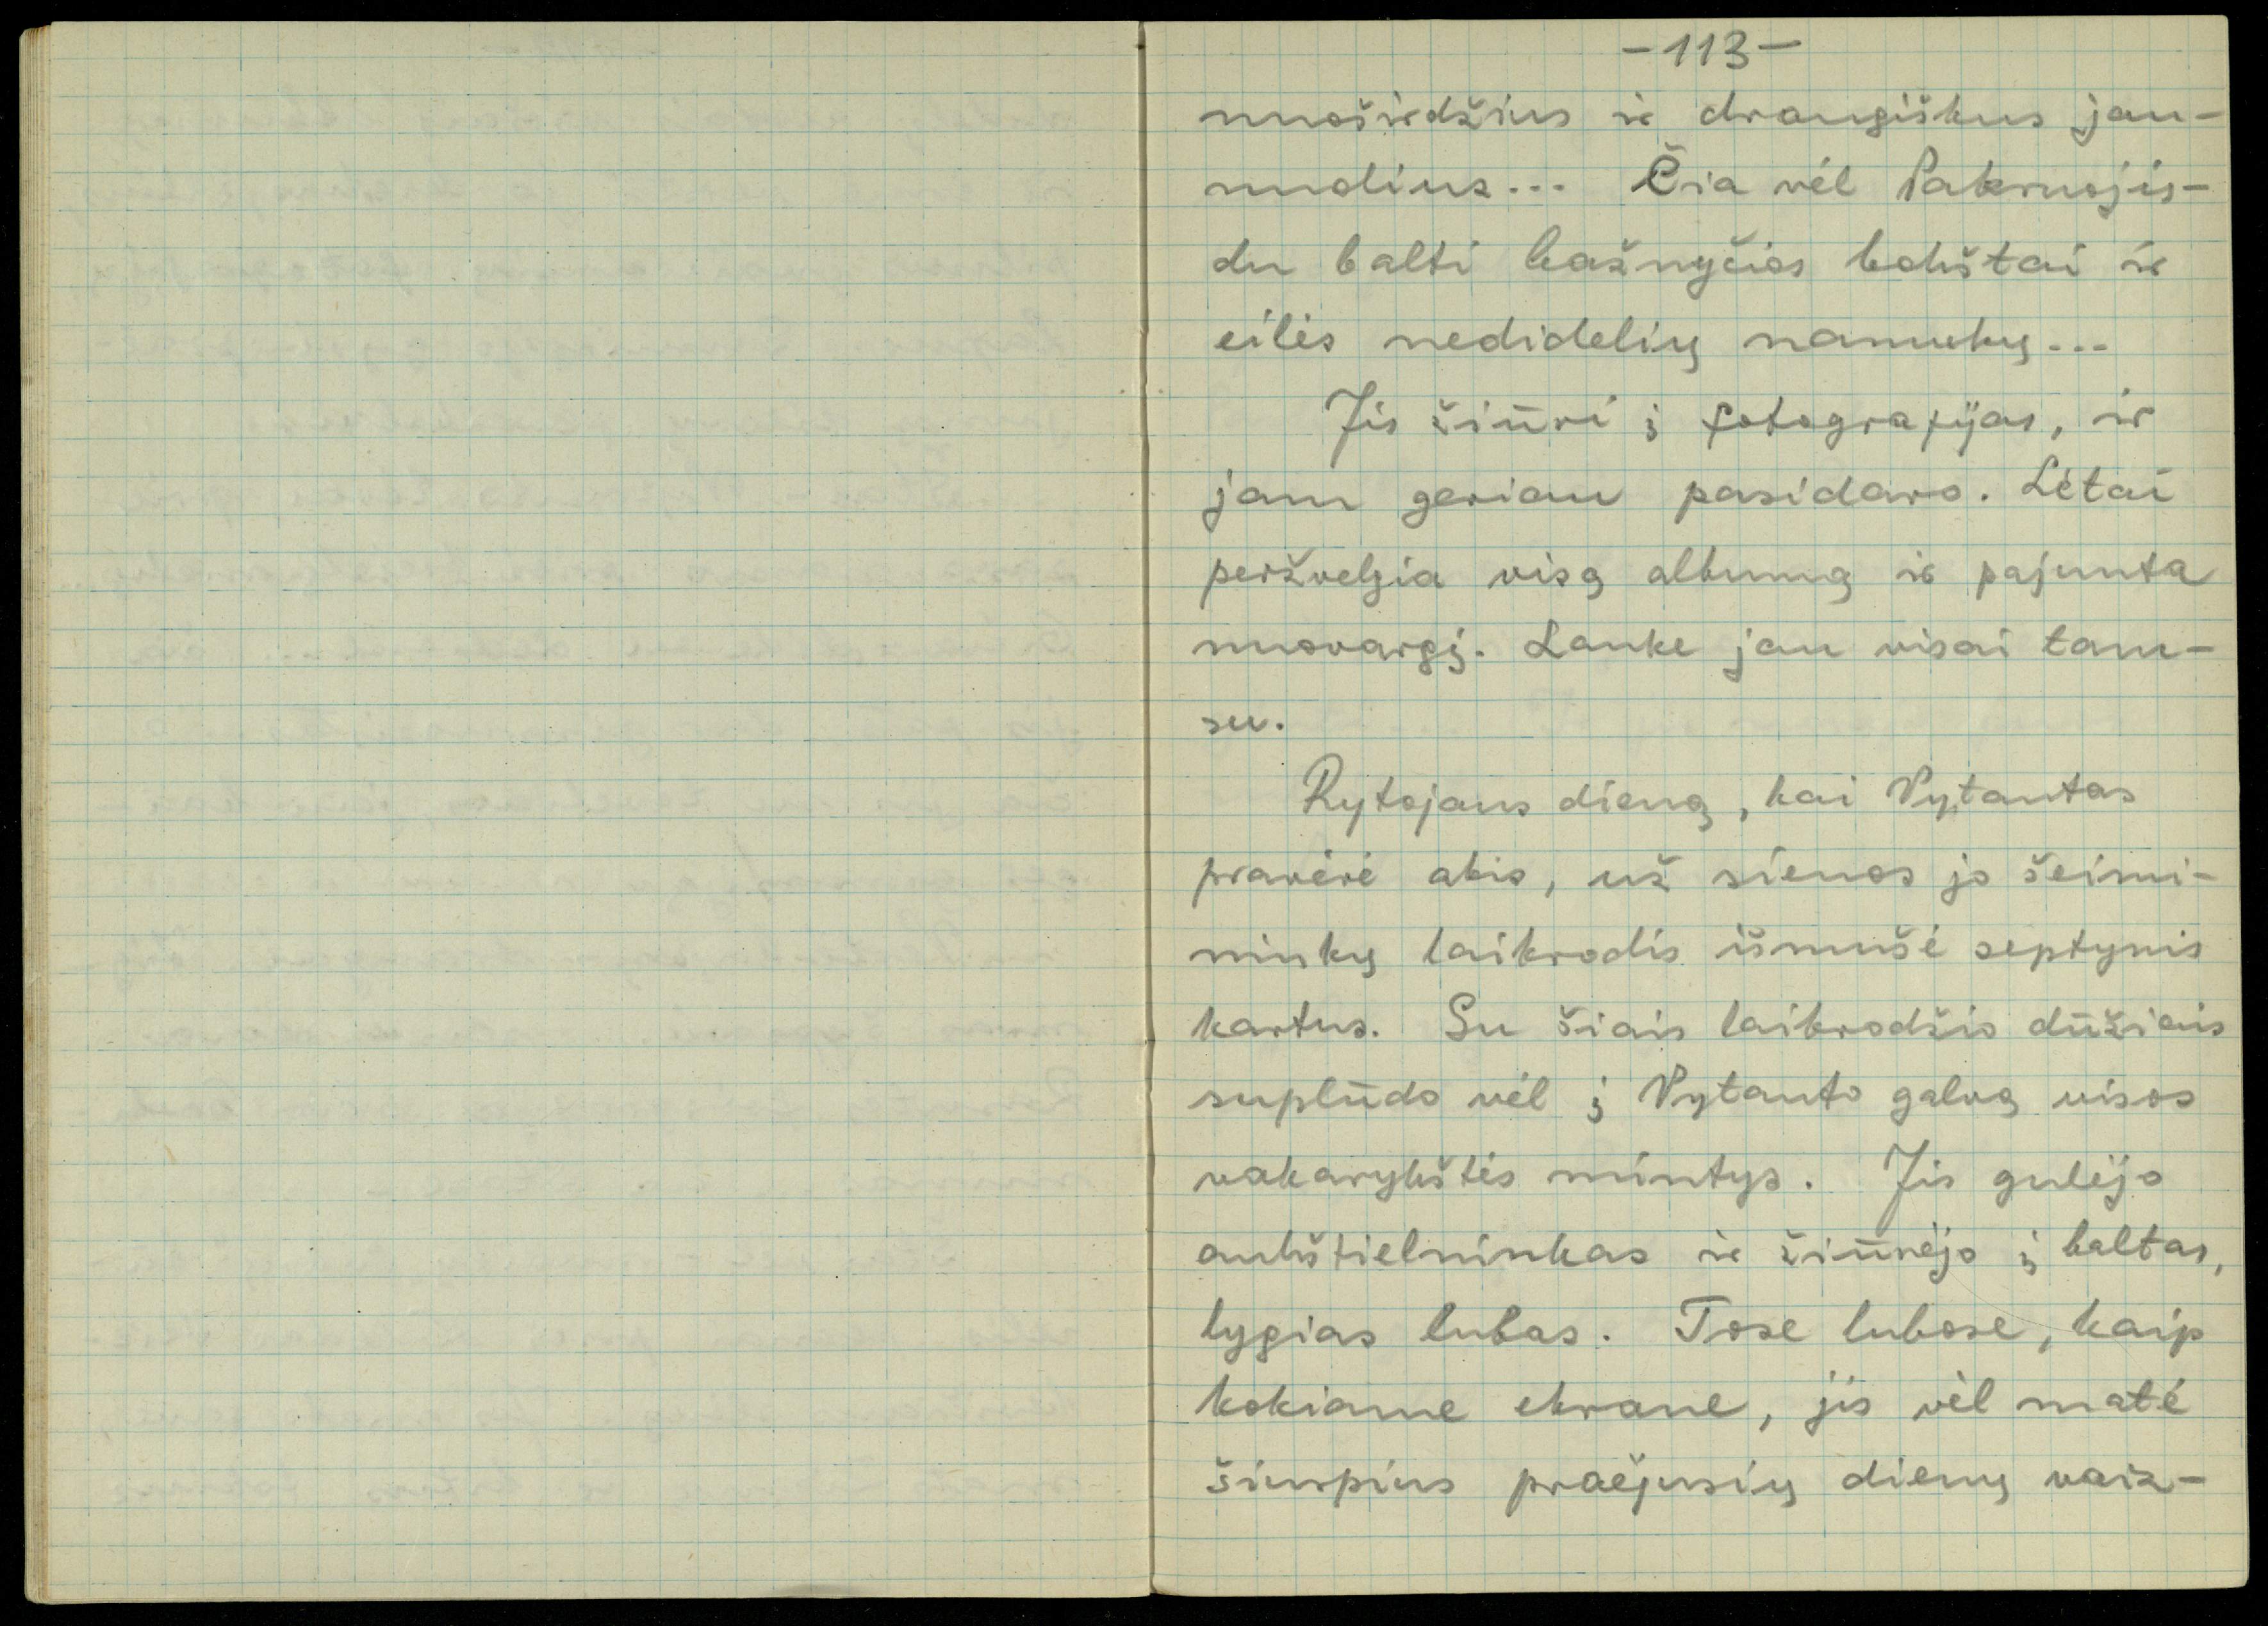 -113-
nuoširdžius ir draugiškus jau-
nuolius... Čia vėl Pakruojis-
du balti bažnyčios bokštai ir
eilės nedidelių namukų...
Jis žiūri į fotografijas, ir
jam geriau pasidaro. Lėtai
peržvelgia visą albumą ir pajunta
nuovargį. Lauke jau visai tam-
su.
Rytojaus dieną, kai Vytautas
pravėrė akis, už sienos jo šeimi-
ninkų laikrodis išmušė septynis
kartus. Su šiais laikrodžio dūžiais
suplūdo vėl į Vytauto galvą visos
vakarykštės mintys. Jis gulėjo
aukštielninkas ir žiūrėjo į baltas,
lygias lubas. Tose lubose, kaip
kokiame ekrane, jis vėl matė
šiurpius praėjusių dienų vaiz-